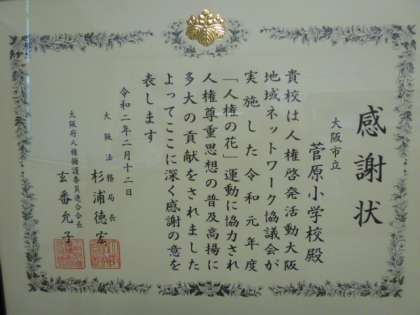 感謝状
大阪市立
菅原小学校殿
貴校は人権啓発活動大阪
地域ネットワーク協議会が
実施した令和元年度
「人権の花」運動に協力され
人権尊重思想の普及高揚に
多大の貢献をされました
よってここに深く感謝の意を
表します
令和二年二月十二日
大阪法務局長
杉浦徳宏
大阪府人権擁護委員連合会長
玄番允子